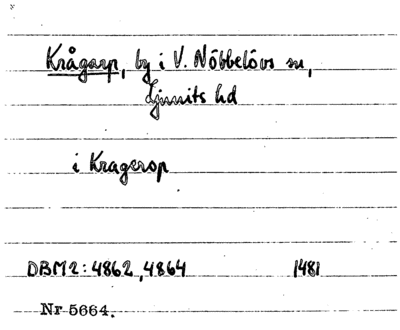 Krågarp, by i V. Nöbbelövs sn,
Ljunits hd
i Kragerop
DBM2: 4862, 4864 1481
Nr 5664.